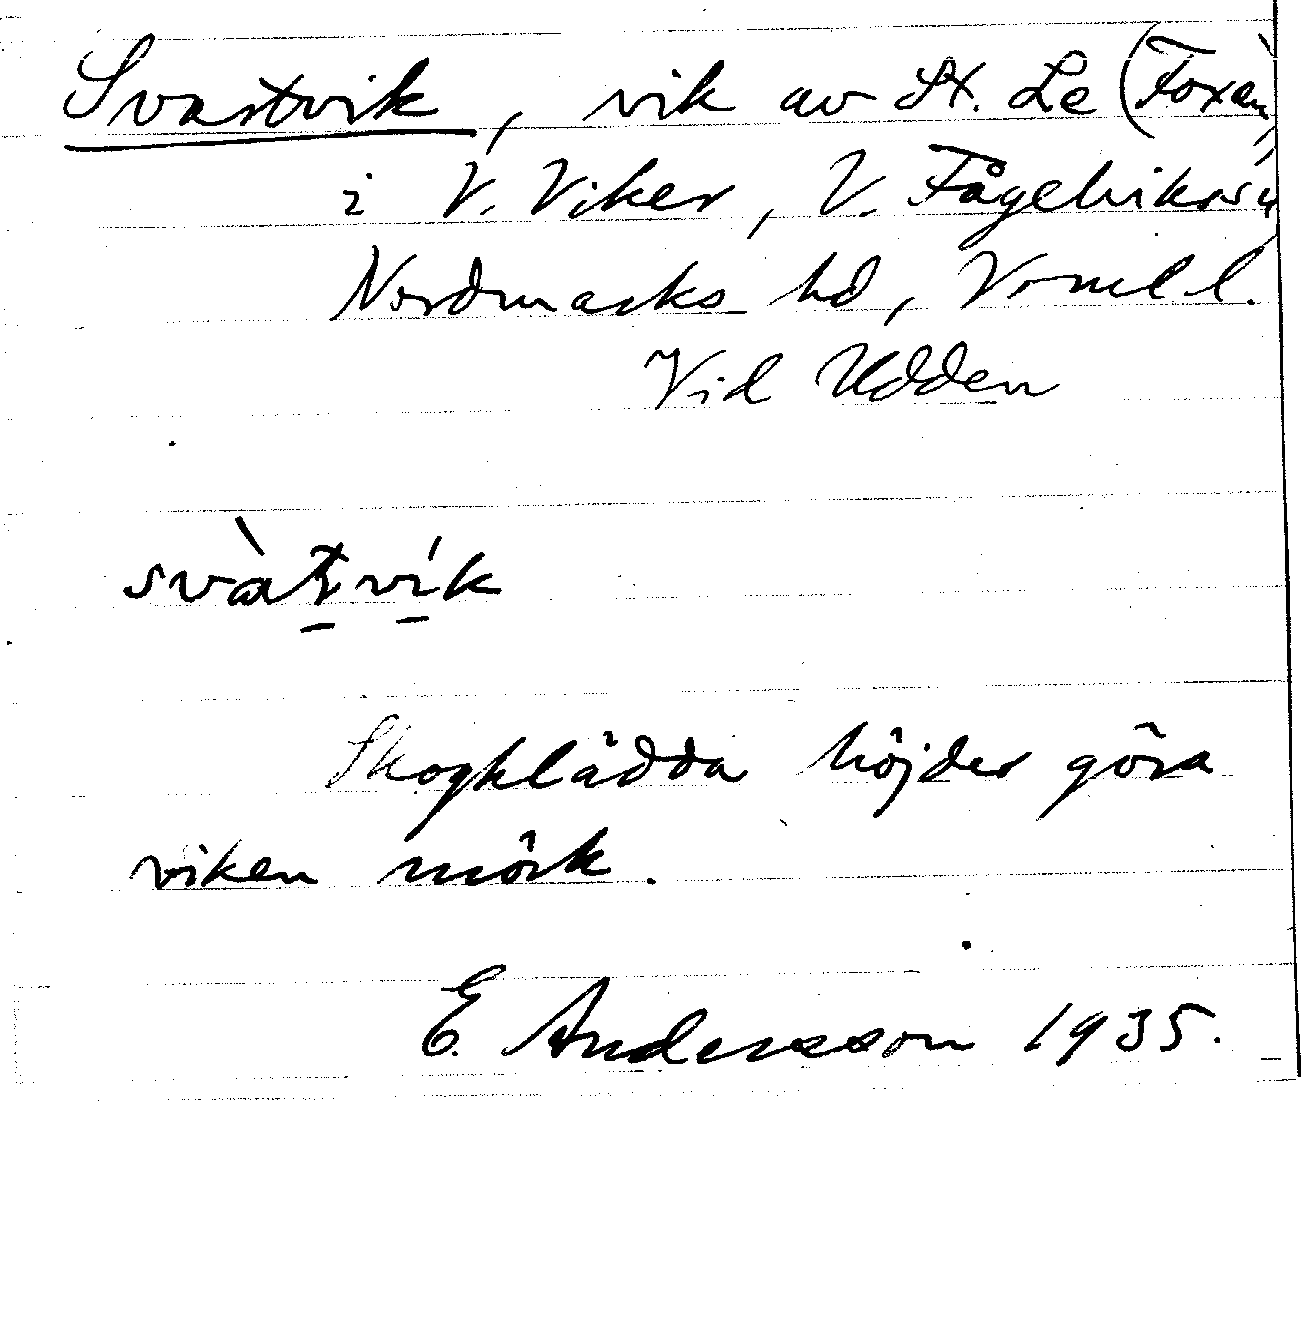 Svartvik, vik av St. Le (Foxen)
i V. Viker, V. Fågelviks sn
Nordmarks hd, Vrml l.
Vid Udden
svàtvík
Skogklädda höjder göra
viken mörk.
E. Andersson 1935.